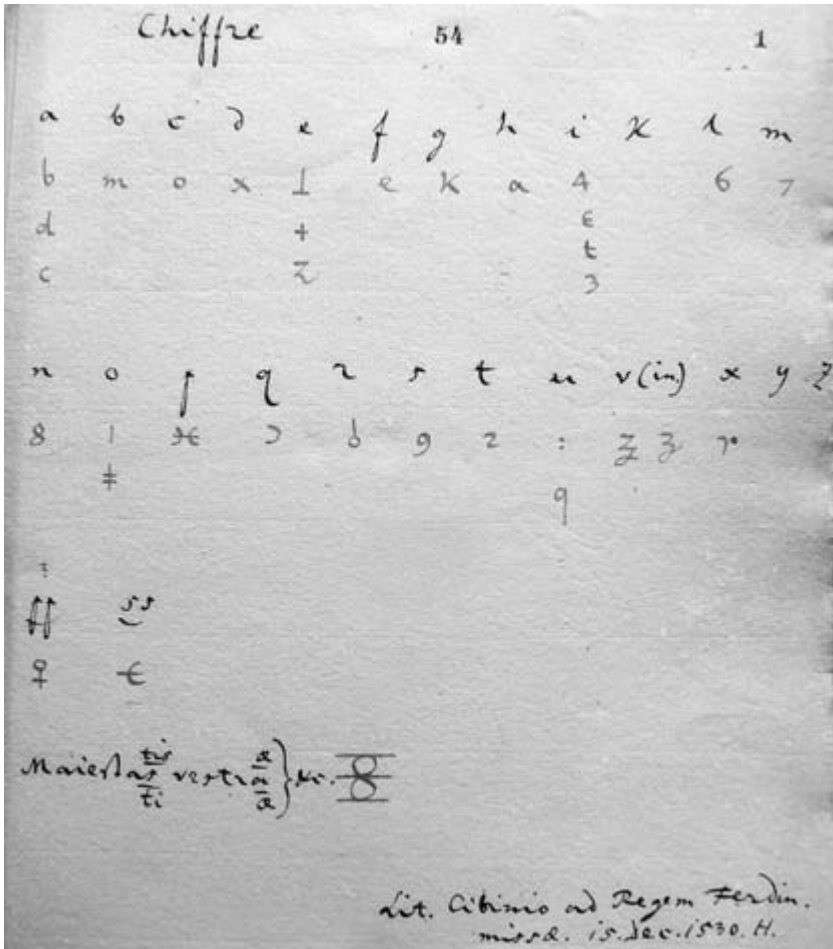 Chiffre 54 1
a b c d e f g h i k l m
b m o x ⊥ e K a 4 6 7
d + ϵ
t
c Z 3
n o p q r s t u v(in) x y z
8 1 ж ɔ 9 2 : ʒ ʒ
ǂ
9
?
ff ss
♀ €
tis æ
Maiestas vestra &c. 8
ti æ
Lit. Cibinio ad Regem Ferdin.
missæ. 15. Dec. 1530. H.